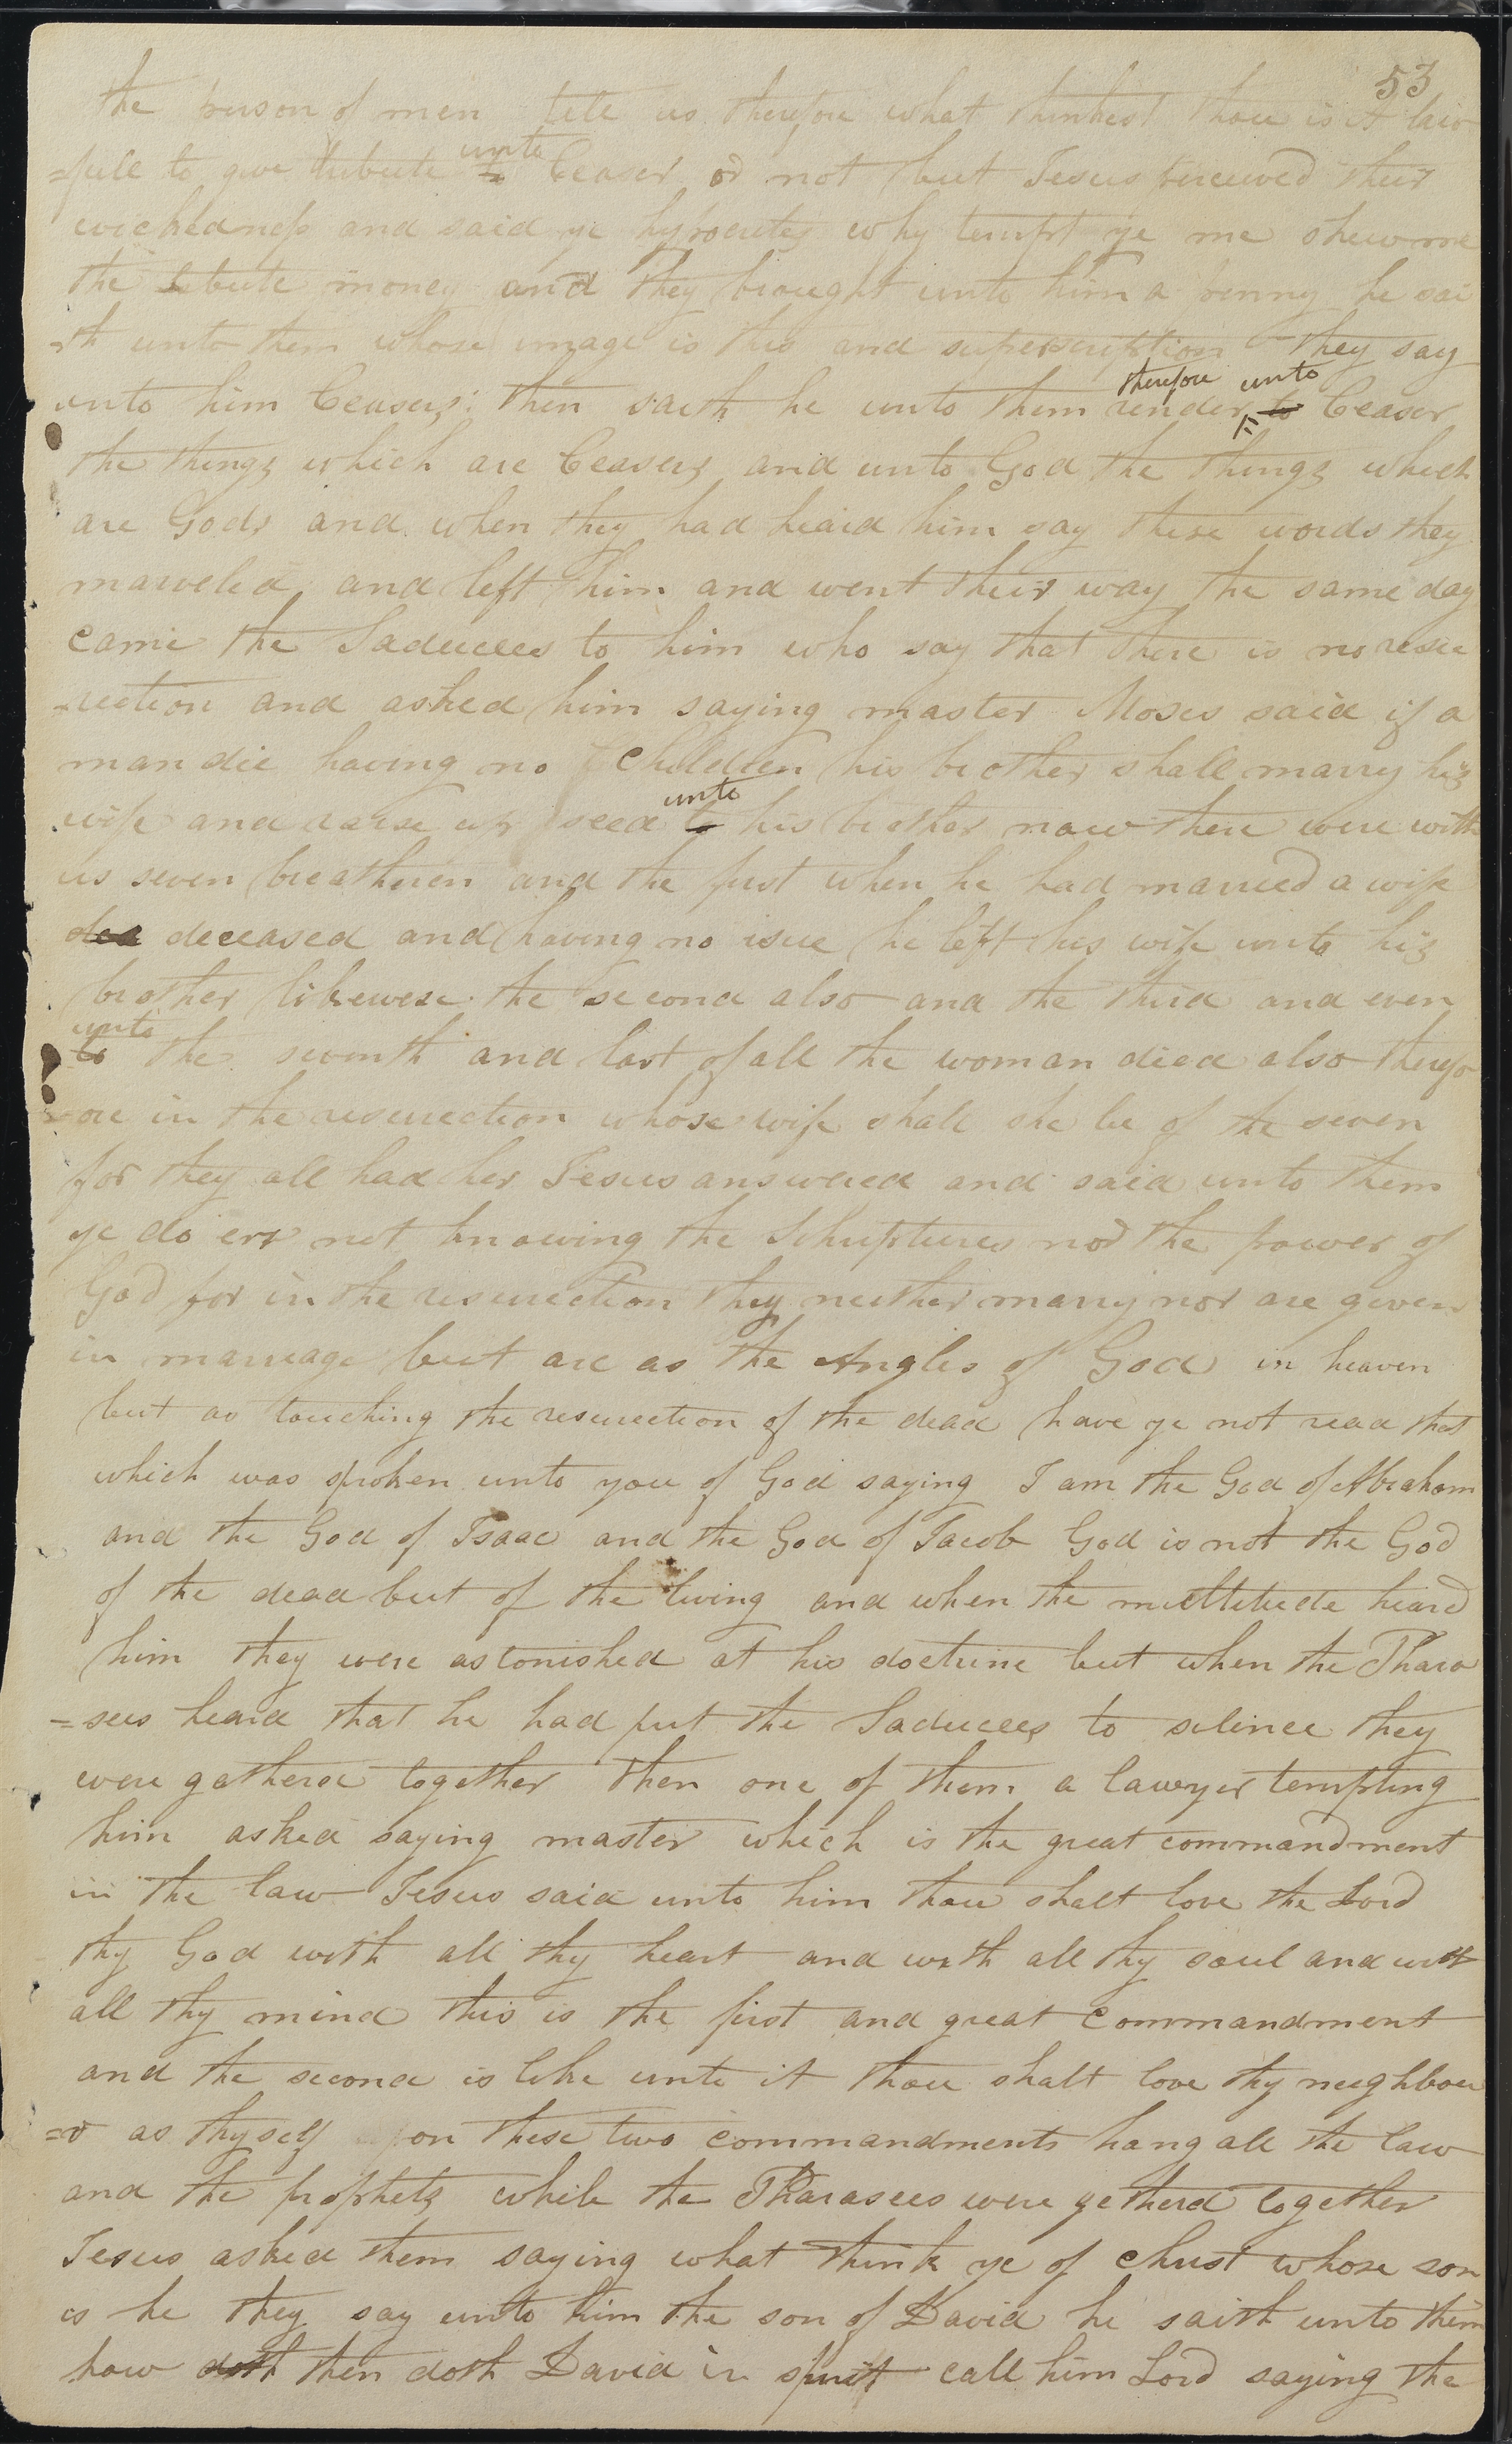 53
the person of men tell us therefore what thinkest thou is it law
=full to give tribute to unto Ceaser or not but Jesus perceived their
wickedness and said ye hypocrites why tempt ye me shew me
the tribute money and they brought unto him a penny he sai
-th unto them whose image is this and superscription they say
unto him Ceasers: then saith he unto them render therefore to unto Ceaser
the things which are Ceasers and unto God the things which
are Gods and when they had heard him say these words they
marveled and left him and went their way the same day
came the Saducees to him who say that there is no resur
-rection and asked him saying master Moses said if a
man die having no children his brother shall marry his
wife and raise up seed to unto his brother now there were with
us seven breatheren and the first when he had married a wife
dea deceased and having no isue he left his wife unto his
brother likewese the second also and the third and even
to unto the seventh and last of all the woman died also therefo
-ore in the resurrection whose wife shall she be of the seven
for they all had her Jesus answered and said unto them
ye do err not knowing the Schriptures nor the power of
God for in the resurrection they neither marry nor are given
in marriage but are as the Angles of God in heaven
but as touching the resurrection of the dead have ye not read that
which was spoken unto you of God saying I am the God of Abraham
and the God of Isaac and the God of Jacob God is not the God
of the dead but of the living and when the multitude heard
him they were astonished at his doctrine but when the Phara
=sees heard that he had put the Saducees to silince they
were gatherd together then one of them a lawyer tempting
him asked saying master which is the great commandment
in the law Jesus said unto him thou shalt love the Lord
thy God with all thy heart and with all thy soul and with
all thy mind this is the first and great commandment
and the second is like unto it thou shalt love thy neighbou
=r as thyself upon these two commandments hang all the law
and the prophets while the Pharasees were getherd together
Jesus asked them saying what think ye of Christ whose son
is he they say unto him the son of David he saith unto them
how doth then doth David in spirit call him Lord saying the